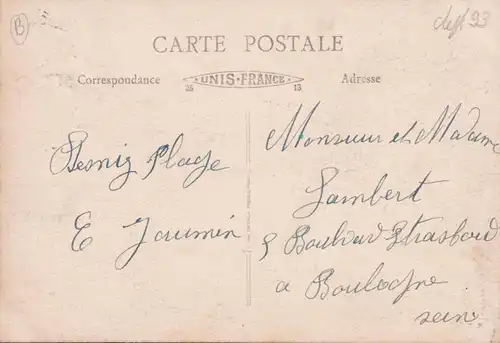 B
dept 93
CARTE POSTALE
Correspondance
UNIS-FRANCE
Adresse
26
13
Plage
E Joumin
Monsieur et Madame
Lambert
5 Boulvar Strasbord
a Boulogne
seine